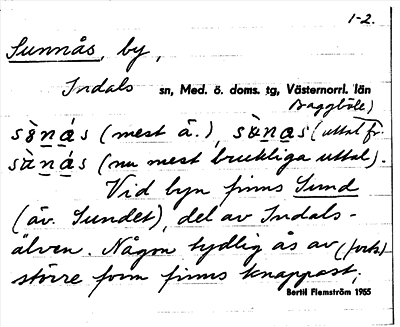 1-2.
Sunnås, by,
Indals sn, Med. ö. doms. tg, Västernorrl. län
Baggböle)
(mest ä.), (uttal fr.
(nu mest brukliga uttal).
Vid byn finns Sund
(äv. Sundet), del av Indals-
älven. Någon tydlig ås av (forts.)
större form finns knappast;
Bertil Flemström 1965